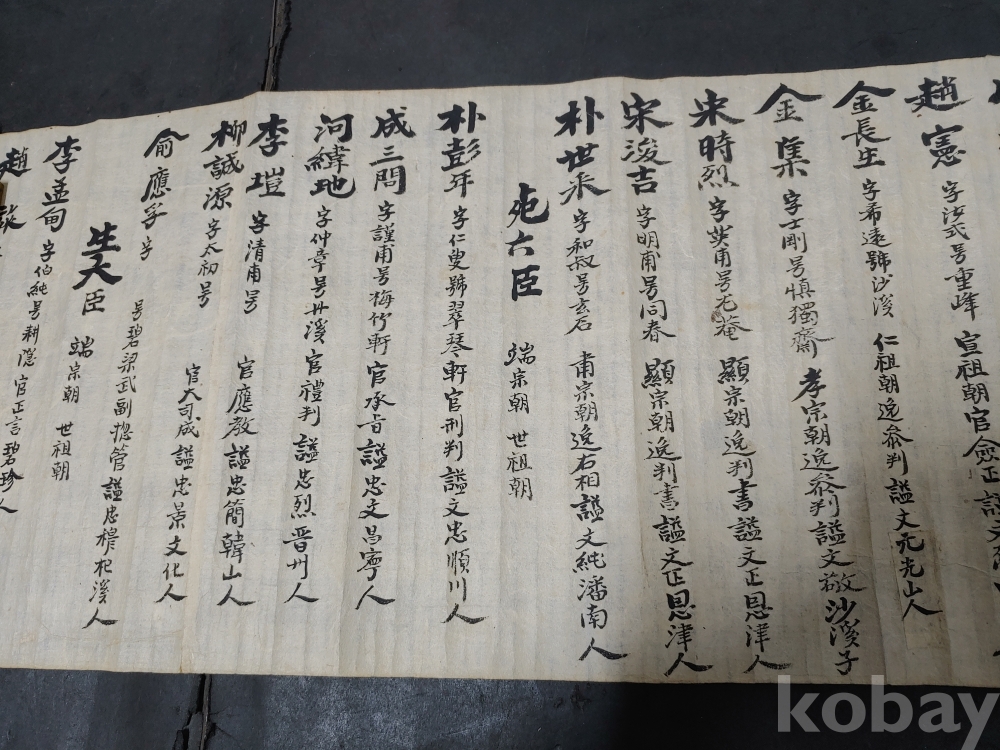 趙憲 字汝式号重峰 宣祖朝官僉正謚文
金長生 字希遠號沙溪 仁祖朝逸參判謚文元光山人
金集 字士剛号愼獨齋 孝宗朝逸參判謚文敬沙溪子
宋時烈 字英甫号尤菴 顯宗朝逸判書謚文正恩津人
宋浚吉 字明甫号同春 顯宗朝逸判書謚文正恩津人
朴世采 字和叔号玄石 肅宗朝逸右相謚文純潘南人
死六臣 端宗朝 世祖朝
朴彭年 字仁叟號翠琴軒官刑判謚文忠順川人
成三問 字謹甫号梅竹軒 官承旨謚忠文昌寧人
河緯地 字仲章号丹溪 官禮判 謚忠烈晋州人
李塏 字清甫号 官應教謚忠簡韓山人
柳誠源 字太初号 官大司成謚忠景文化人
俞應孚 字 号碧梁武副摠管謚忠穆杞溪人
生六臣 端宗朝 世祖朝
李孟甸 字伯純号耕隱 官正言碧珍人
趙
kobay